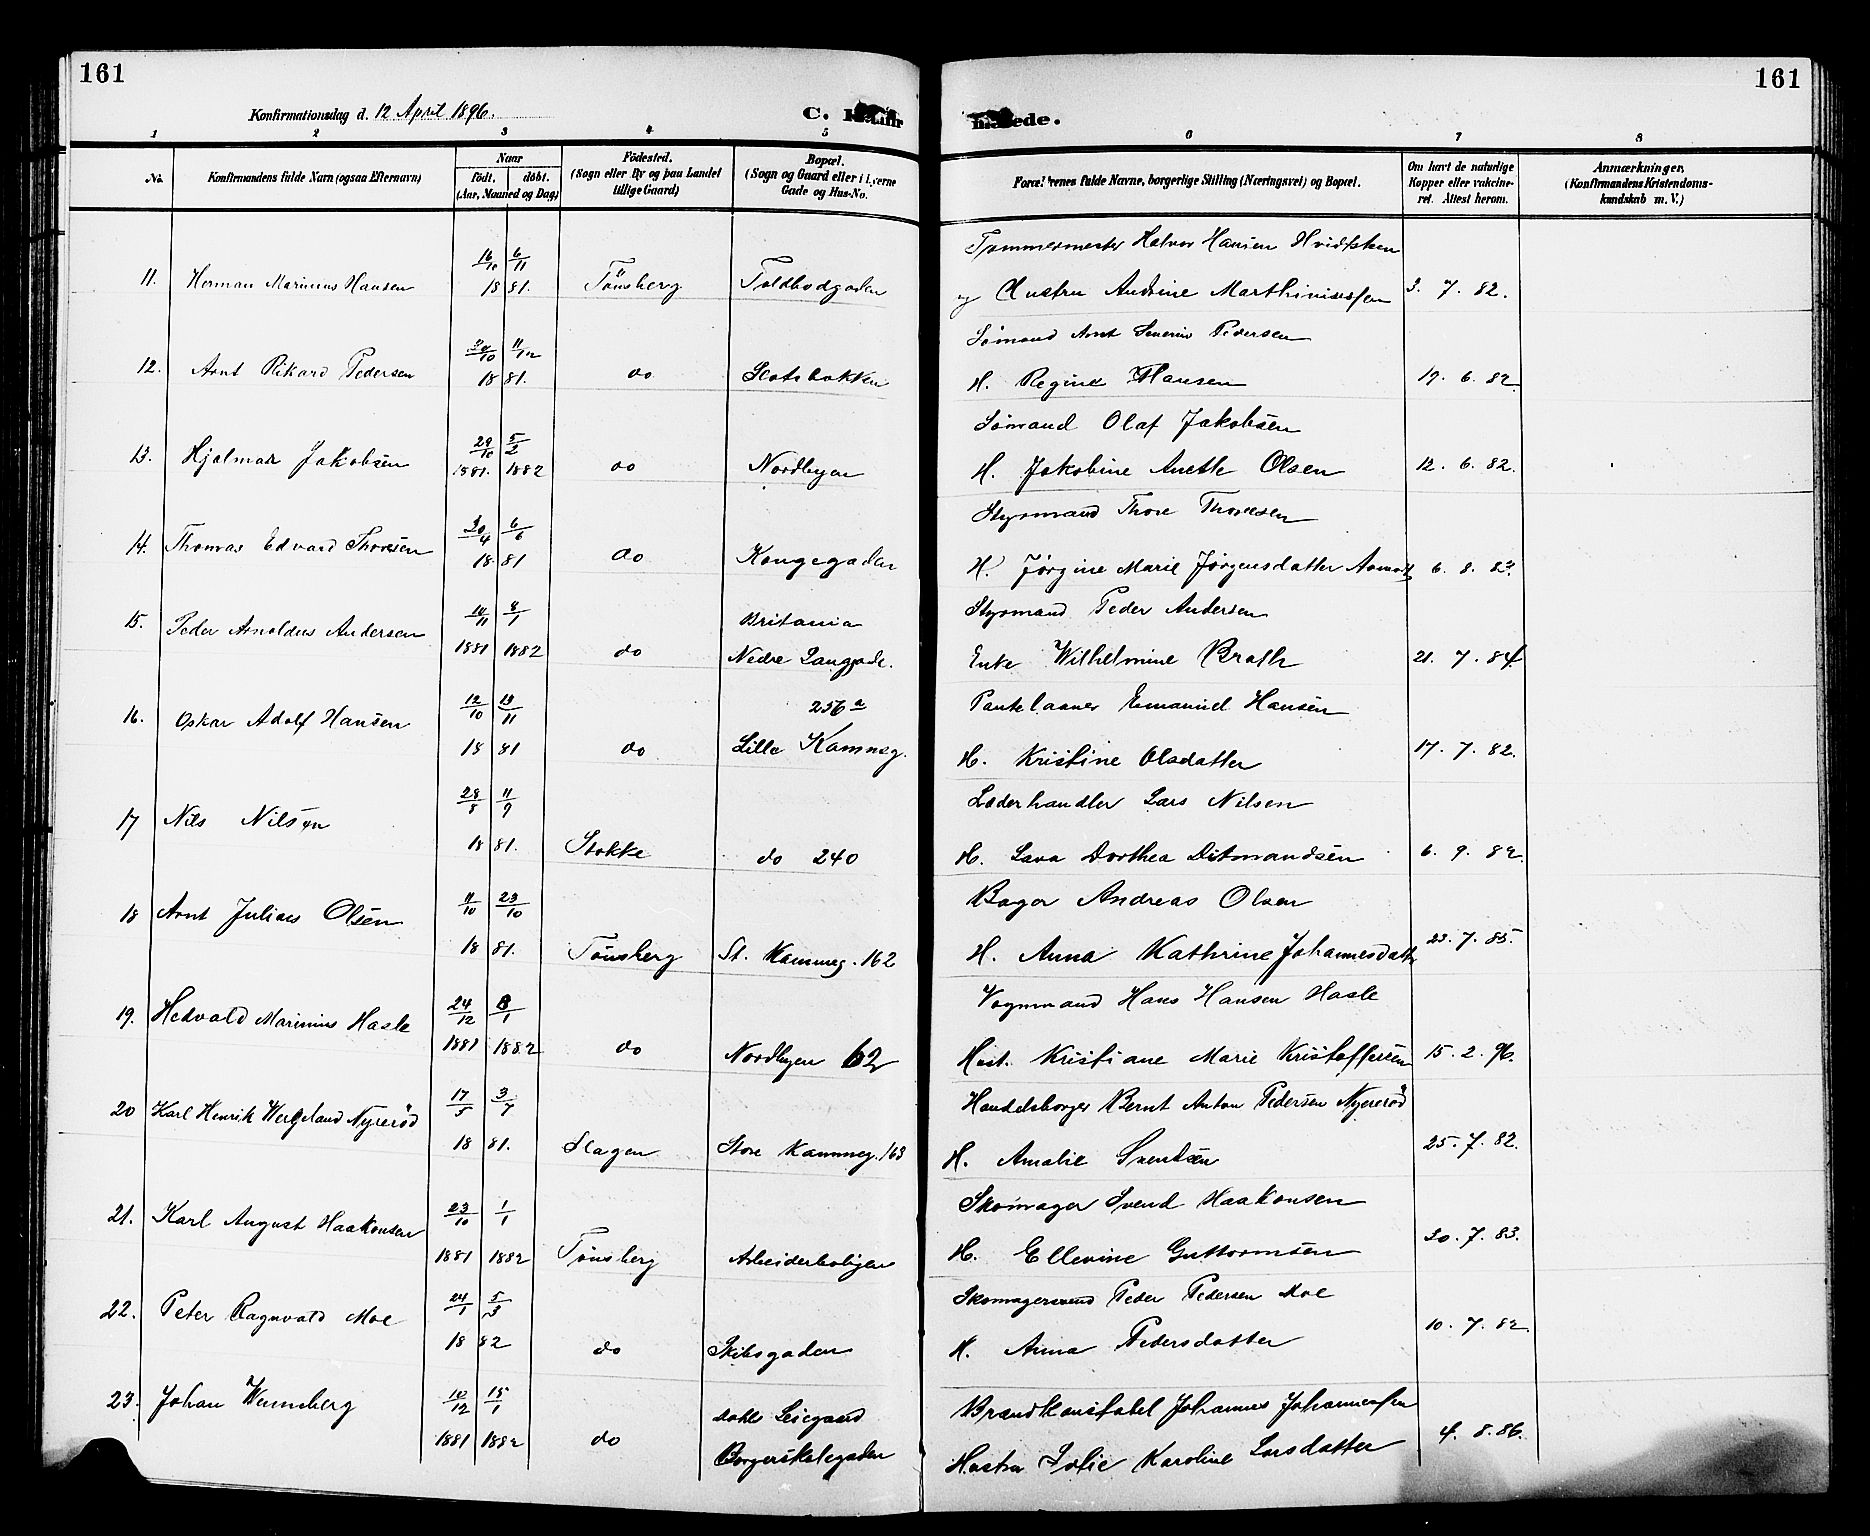 161
161
Konfirmationsdag d. 12 April 1896.
C. Konfir
merede.
1 2 3 4 5 6 7 8
No.
Konfirmandens fulde Navn (ogsaa Efternavn)
Naar
født. døbt.
(Aar, Maaned og Dag)
Födested.
(Sogn eller By og paa Landet
tillige Gaard)
Bopæl.
(Sogn og Gaard eller i Byerne
Gade og Hus-No.
Forældrenes fulde Navne, borgerlige Stilling (Næringsvei) og Bopæl.
Om havt de naturlige
Kopper eller vakcine-
ret. Attest herom.
Anmærkninger,
(Konfirmandens Kristendoms-
kundskab m. V.)
16/10 6/11 Tømmermester Halvor Hansen
11. Herman Marinius Hansen 18 81. Tönsberg Toldbodgaden og Andrine 3. 7. 82.
11/12 Sømand Arnt Severin Pedersen
12. Arnt Rikard Pedersen 10 18 81. do Slotsbakken H. Regine Hansen 19. 6. 82.
29/10 5/2 Sömand Olaf Jakobsen
13. Hjalmar Jakobsen 1881. 1882 do Nordbyen H. Jakobine Anette Olsen 12. 6. 82.
30/4 6/6 Styrmand Thore Thoresen
14. Thomas Edvard Thoresen 18 81 do Kongegaden H. Jørgine Marie Jørgensdatter 6. 8. 82.
8/1 Britania Styrmand Peder Andersen
15. Peder Arnoldus Andersen 1881 1882 do Nedre Langgade. Enke Wilhelmine Brath 21. 7. 84.
12/10 13/11 256 a Pantelaaner Emanuel Hansen
16. Oskar Adolf Hansen 18 81 do Lille Kamneg. H. Kristine Olsdatter 17. 7. 82.
28/8 11/9 Læderhandler Lars Nilsen
17 Nils Nilsen 18 81. Stokke do 240 H. Lava Dorthea Ditmandsen 6. 9. 82.
11/10 23/10 Bager Andreas Olsen
18 Arnt Julius Olsen 18 81. Tönsberg St. Kamneg. 162 H. Anna Kathrine Johannesdatter 23. 7. 85.
24/12 8/1 Vognmand Hans Hansen Hasle
19. Hedvald Marinius Hasle 1881 1882 do Nordbyen 62 Hust. Kristiane Marie Kristoffersen 15. 2. 96.
17/5 3/7 Handelsborger Bernt Anton Pedersen Nyrerød
20 Karl Henrik Wergeland Nyrerød 18 81. Slagen Store Kamneg. 163 H. Amalie Svendsen 25. 7. 82.
23/10 1/1 Skomager Svend Haakonsen
21. Karl August Haakonsen 1881 1882 Tönsberg Arbeiderboligen H. Ellevine Guttormsen 20. 7. 83.
24/1 5/3 Skomagersvend Peder Pedersen Moe
22. Peter Ragnvald Moe 18 82 do Skibsgaden H. Anna Pedersdatter 10. 7. 82.
10/12 15/1 Dahls Leiegaard Brandkonstabel Johannes Johannessen
23. Johan Wennberg 1881 1882 do Borgerskolegaden Hustru Karoline Larsdatter 4. 8. 86.